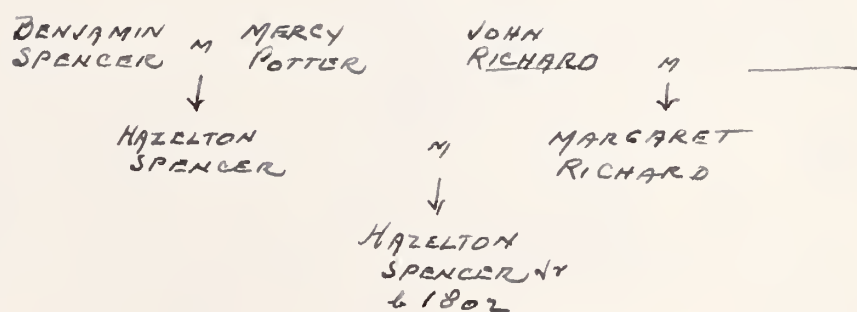 BENJAMIN
SPENCER M MERCY
POTTER
JOHN
RICHARD M
HAZELTON
SPENCER
M
MARGARET
RICHARD
HAZELTON
SPENCER Jr
b 1802